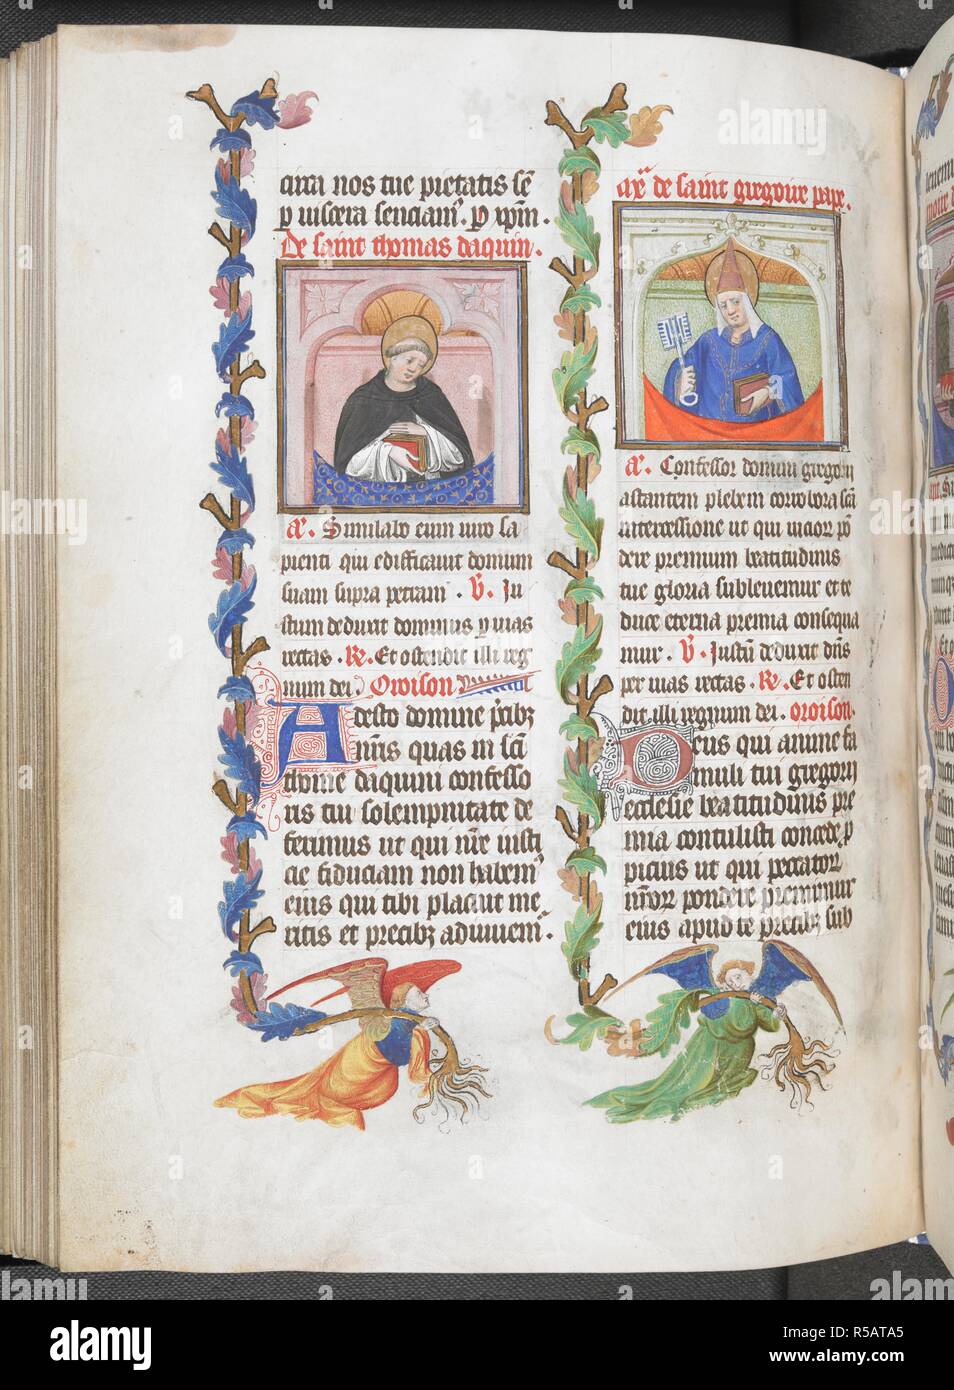 cirra nos tue pietatis sẽ
ꝑ viscera senciamꝰ. ꝑ xp̃m.
De saint thomas daquin.
añ. Simulabo eum viro sa
pienti qui edificauit domum
suam supra petram. ℣. Ju
stum deduxit dominus ꝑ vias
rectas. ℟. Et ostendit illi reg
num dei. Oroison
Adesto domine p̃cibꝫ
nr̃is quas in sc̃i
thome daquini confesso
ris tui solempnitate de
ferimus ut qui nr̃e iusti
cie fiduciam non habemꝰ
eius qui tibi placuit me
ritis et precibꝫ adiuuemꝰ.
de saint gregoire pape.
añ. Confessor domini gregorij
astantem plebem corrobora sc̃a
intercessione ut qui vicior̃ põ
dere premimur beatitudinis
tue gloria subleuemur et te
duce eterna premia consequa
mur. ℣. Justũ deduxit dñs
per vias rectas. ℟. Et osten
dit illi regnum dei. oroison.
Deus qui anime fa
muli tui gregorij
ecclesie beatitudinis pre
mia contulisti concede ꝓ
picius ut qui peccator̃
nr̃or̃ pondere premimur
eius apud te precibꝫ sub
alamy
Image ID: R5ATA5
www.alamy.com